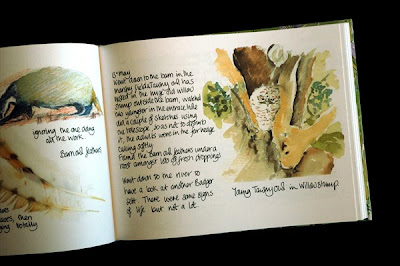 ignoring the one doing
all the work.
Barn owl feathers
then
totally
13th May
Went down to the barn in the
marshy field. Tawny owl has
nested in the huge old willow
stump outside the barn, watched
two youngster in the entrance hole
did a couple of sketches using
the telescope so as not to disturb
it, the adults were in the foliage
calling softly.
Found the Barn owl feathers under a
roost amongst lots of fresh droppings
Went down to the river to
have a look at another Badger
Sett. There were some signs
of life but not a lot.
Young Tawny Owl in Willow Stump